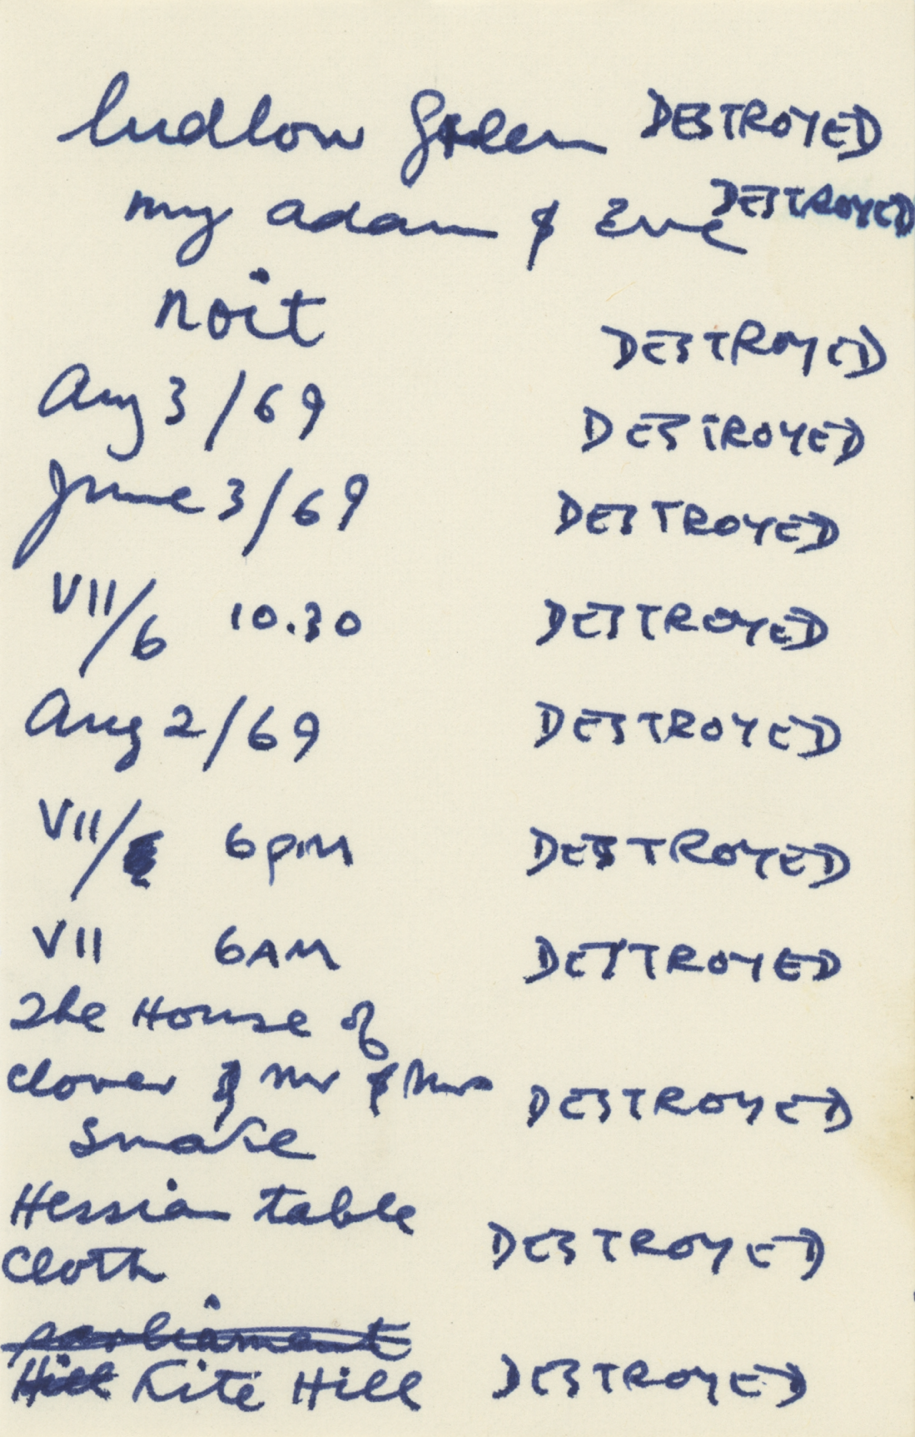 Ludlow Green DESTROYED
my adam & Eve DESTROYED
noit DESTROYED
Aug 3/69 DESTROYED
June 3/69 DESTROYED
VII/6 10.30 DESTROYED
Aug 2/69 DESTROYED
VII/ 6PM DESTROYED
VII 6AM DESTROYED
The House of
clover & Mr & Mrs DESTROYED
Snake
Hessian table
cloth DESTROYED
parliament
Hill Kite Hill DESTROYED